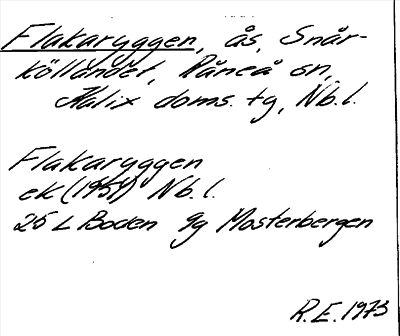 Flakaryggen, ås, Snår-
kölландet, Råneå sn,
Kalix doms. tg, Nb. l.
Flakaryggen
ek (1951) Nb. l.
25 L Boden 9g Mosterbergen
R.E. 1973